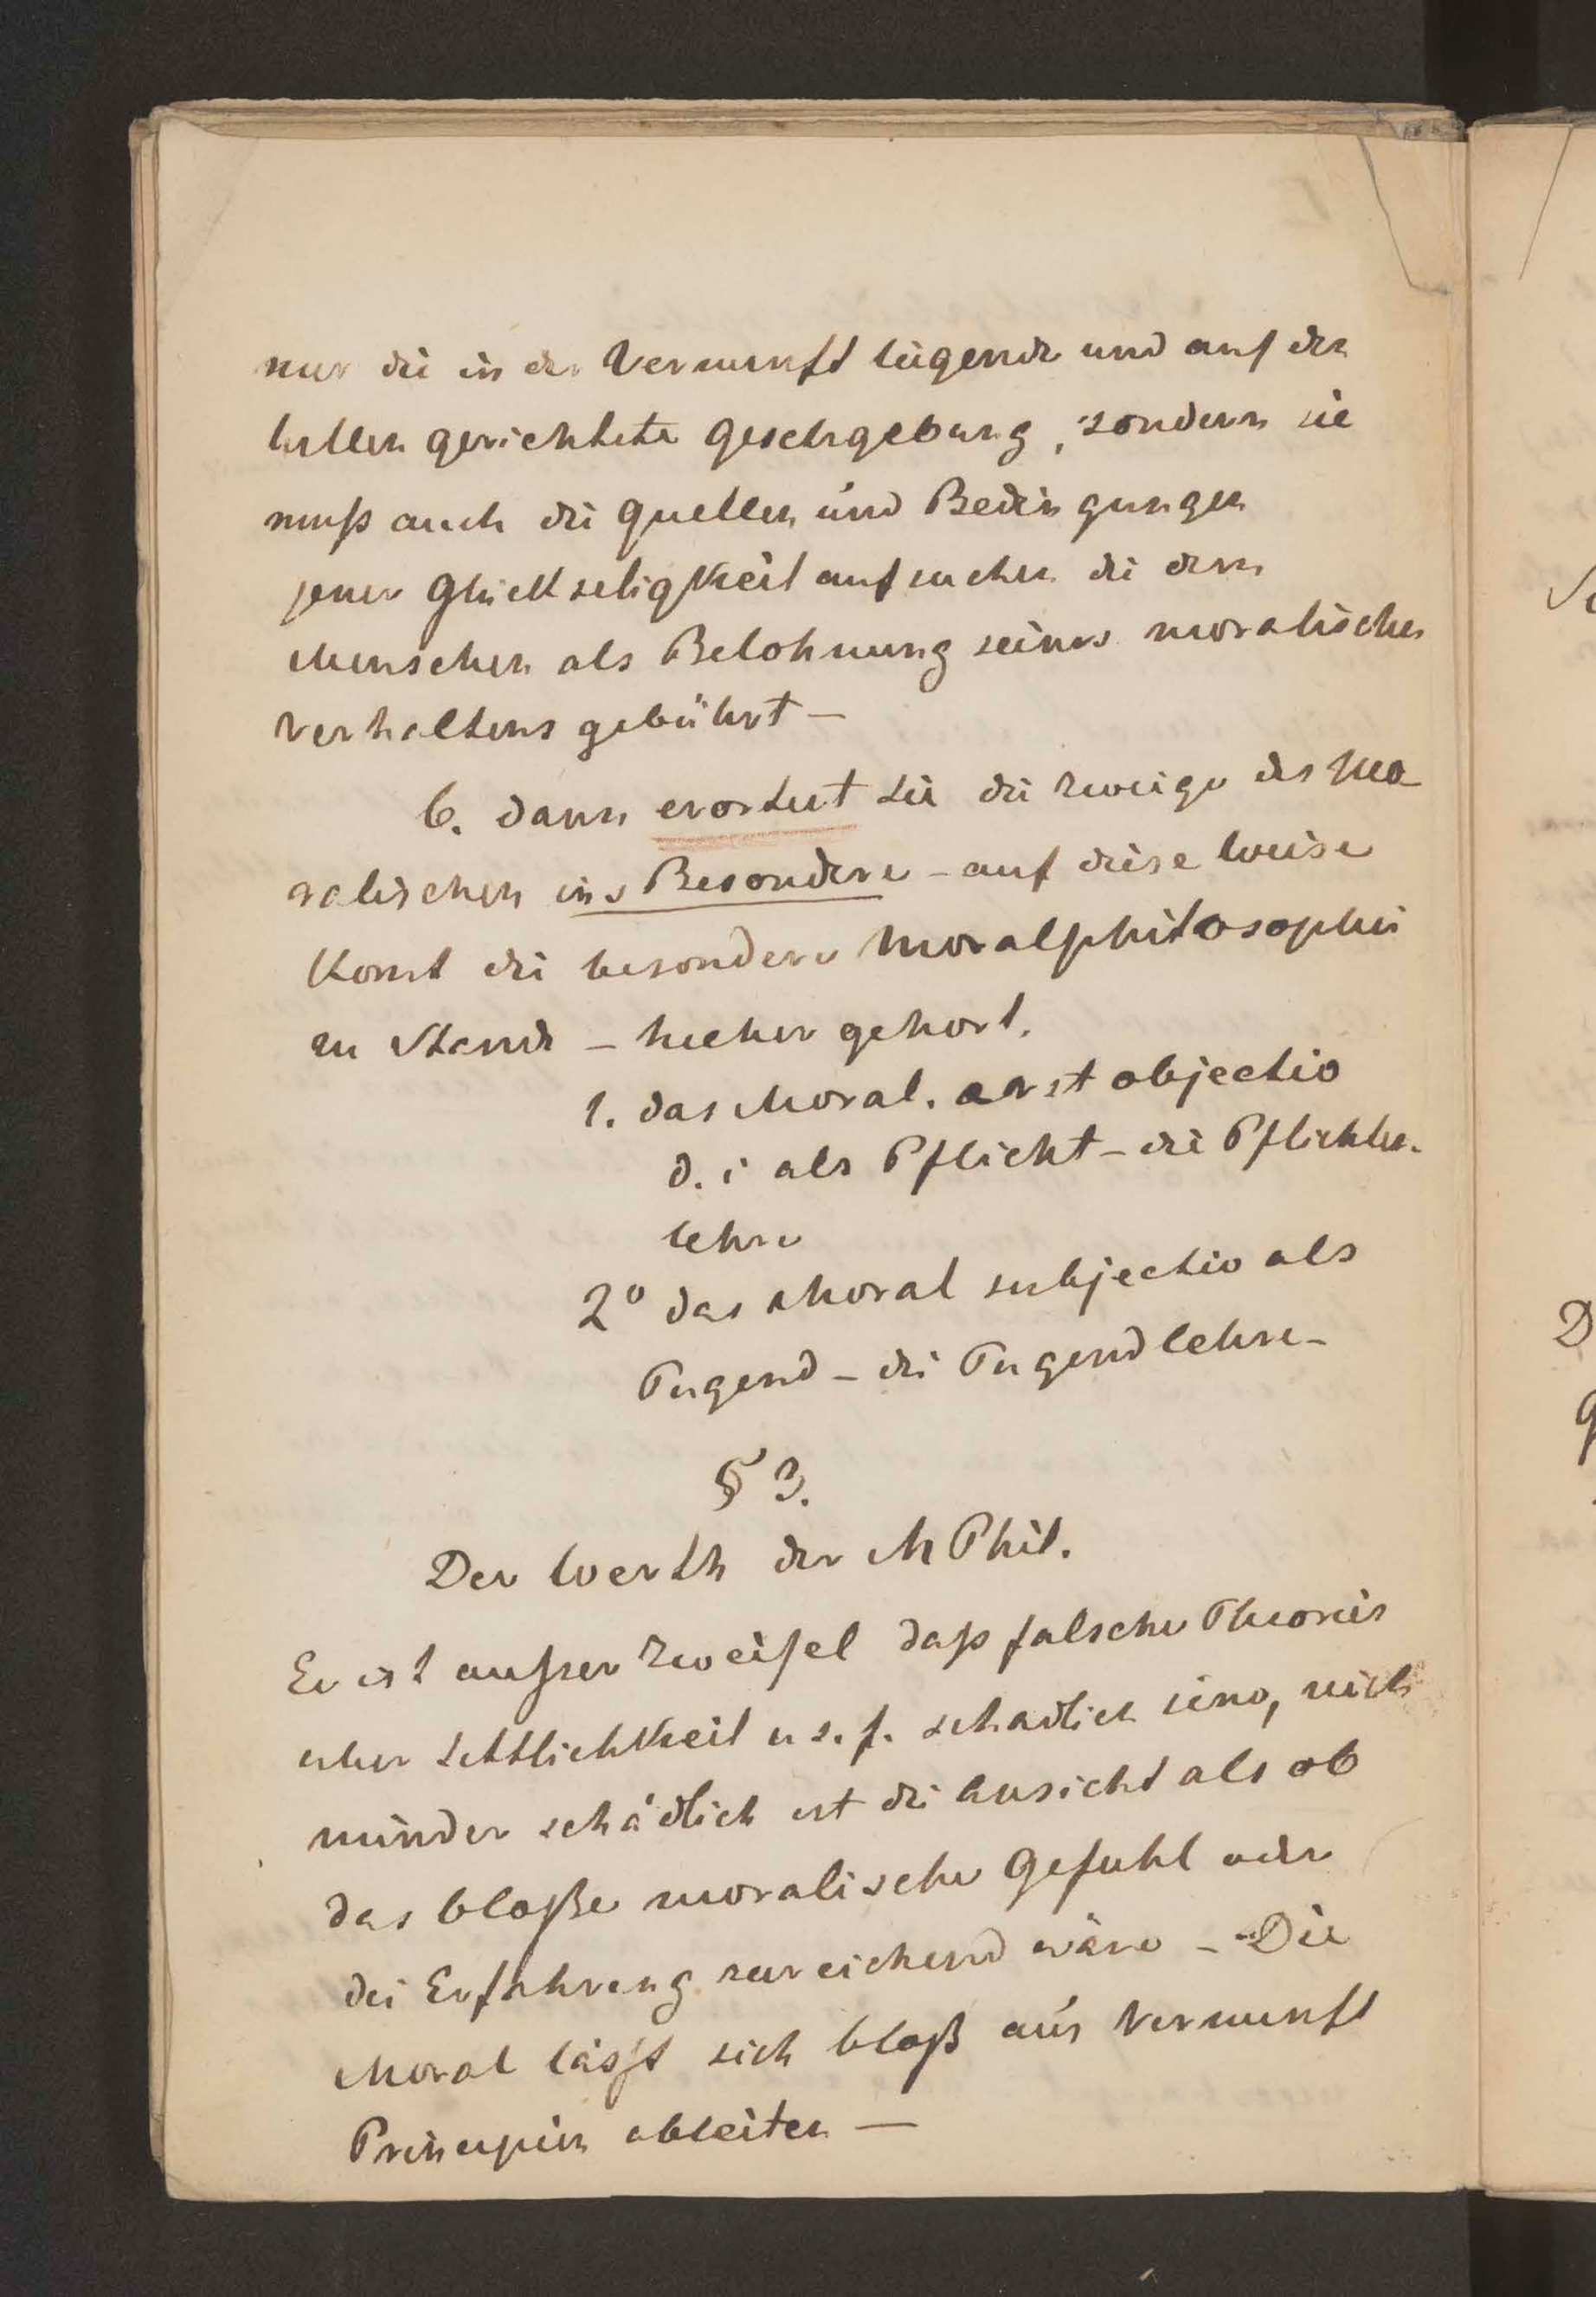 nur die in der Vernunft liegende und auf den
Willen gerichtete Gesetzgebung, sondern sie
muß auch die Quellen und Bedingungen
jener Glückseligkeit aufsuchen die dem
Menschen als Belohnung seines moralischen
Verhaltens gebührt –
b. dann erortert sie die Zweige des Mo
ralischen ins Besondere – auf diese Weise
komt die besondere Moralphilosophie
zu Stande – hieher gehort.
1. das Moral. erst objectiv
d. i als Pflicht – die Pflichten-
lehre
2° das Moral subjectiv als
Tugend – die Tugendlehre –
§ 3.
Der Werth der M Phil.
Es ist außer Zweifel daß falsche Theorien
uber Sittlichkeit u s. f. schadlich sind, nicht
minder schädlich ist die Ansicht als ob
das bloße moralische Gefuhl oder
die Erfahrung zureichend wäre – Die
Moral läßt sich bloß aus Vernunft
Principien ableiten —